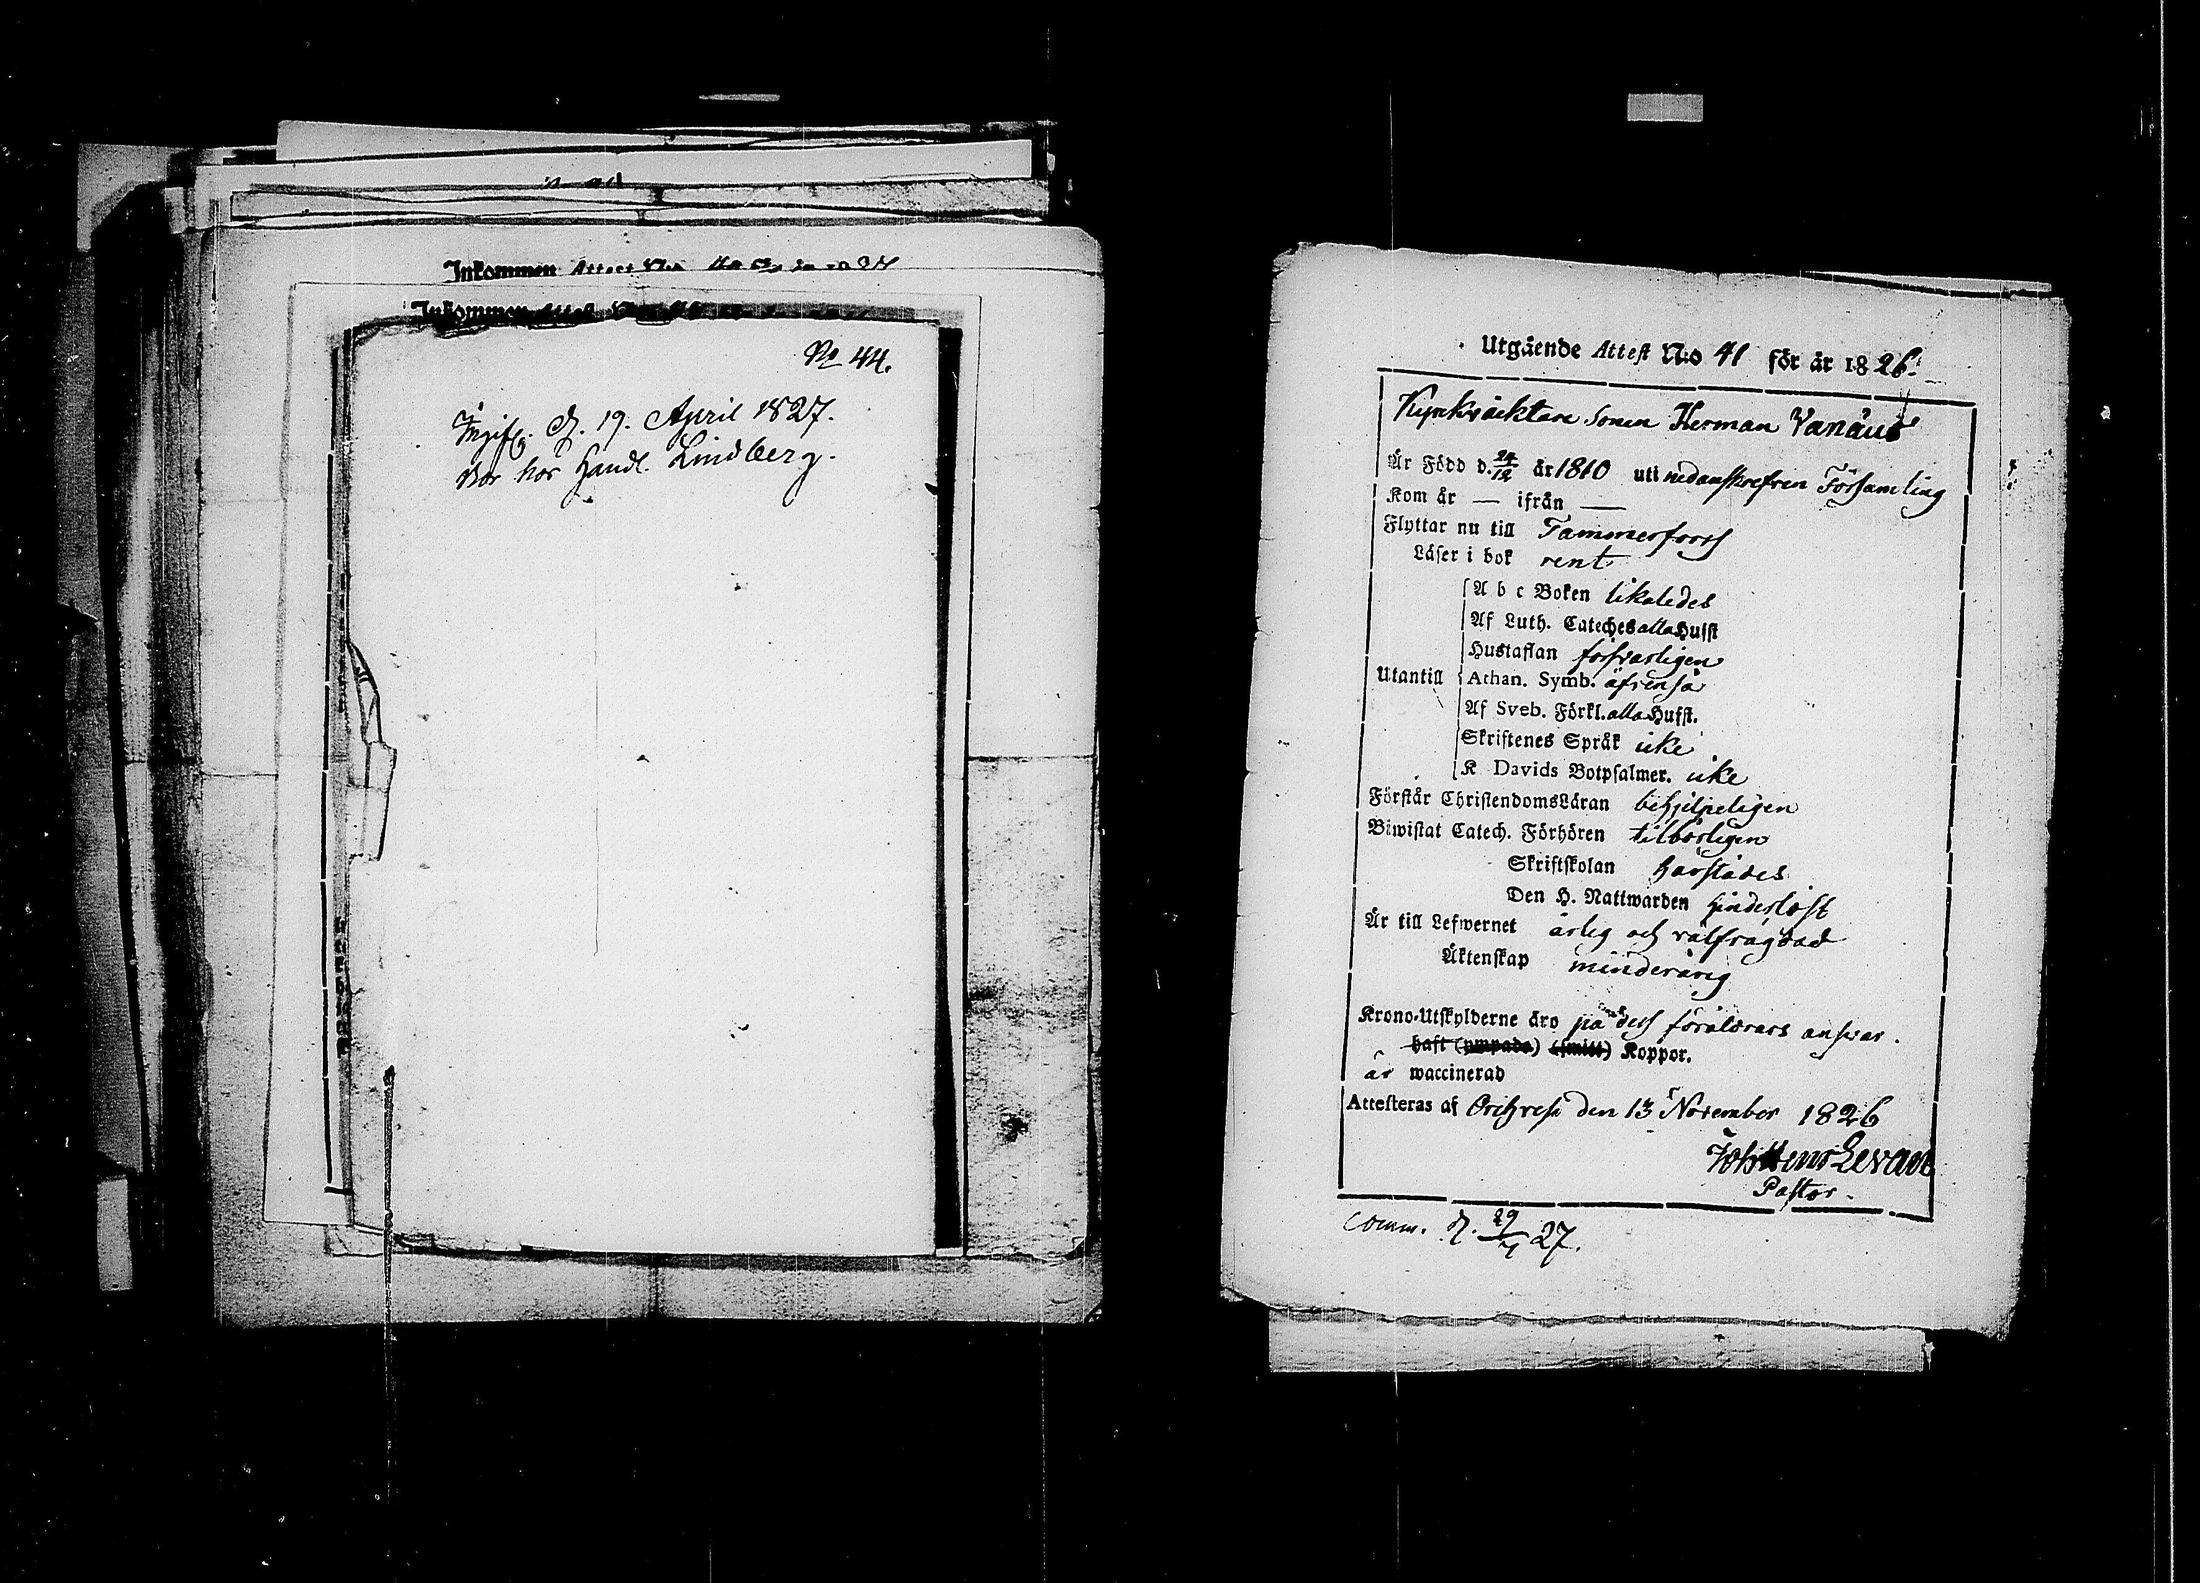 Inkommen Attest N:o
Inkommen Attest
No 44.
Ingifv. d. 19. April 1827.
Bor hos Handl. Lindberg.
Utgående Attest N:o 41 för år 1826.
Kyrkväktare Sonen Herman Vanäus
Är Född d. 24/12 år 1810 uti nedanskrefven Församling
Kom år — ifrån —
Flyttar nu till Tammerforss
Läser i bok rent
A b c Boken likaledes
Af Luth. Cateches alla Hufst
Hustaflan försvarligen
Utantill
Athan. Symb. äfvenså
Af Sveb. Förkl. alla Hufst.
Skriftenes Språk icke
K Davids Botpsalmer. icke
Förstår ChristendomsLäran behjelpeligen
Biwistat Catech. Förhören tilbörligen
Skriftskolan härstädes
Den H. Nattwarden hinderlöst
Är till Lefwernet ärlig och välfrägdad
Äktenskap minderårig
Krono-Utskylderne äro på dess föräldrars ansvar.
haft (ympade) (smitt) Koppor.
är waccinerad
Attesteras af Orihvesi den 13 November 1826
Joh Henr Levan
Pastor.
Comm. d. 29/4 27.